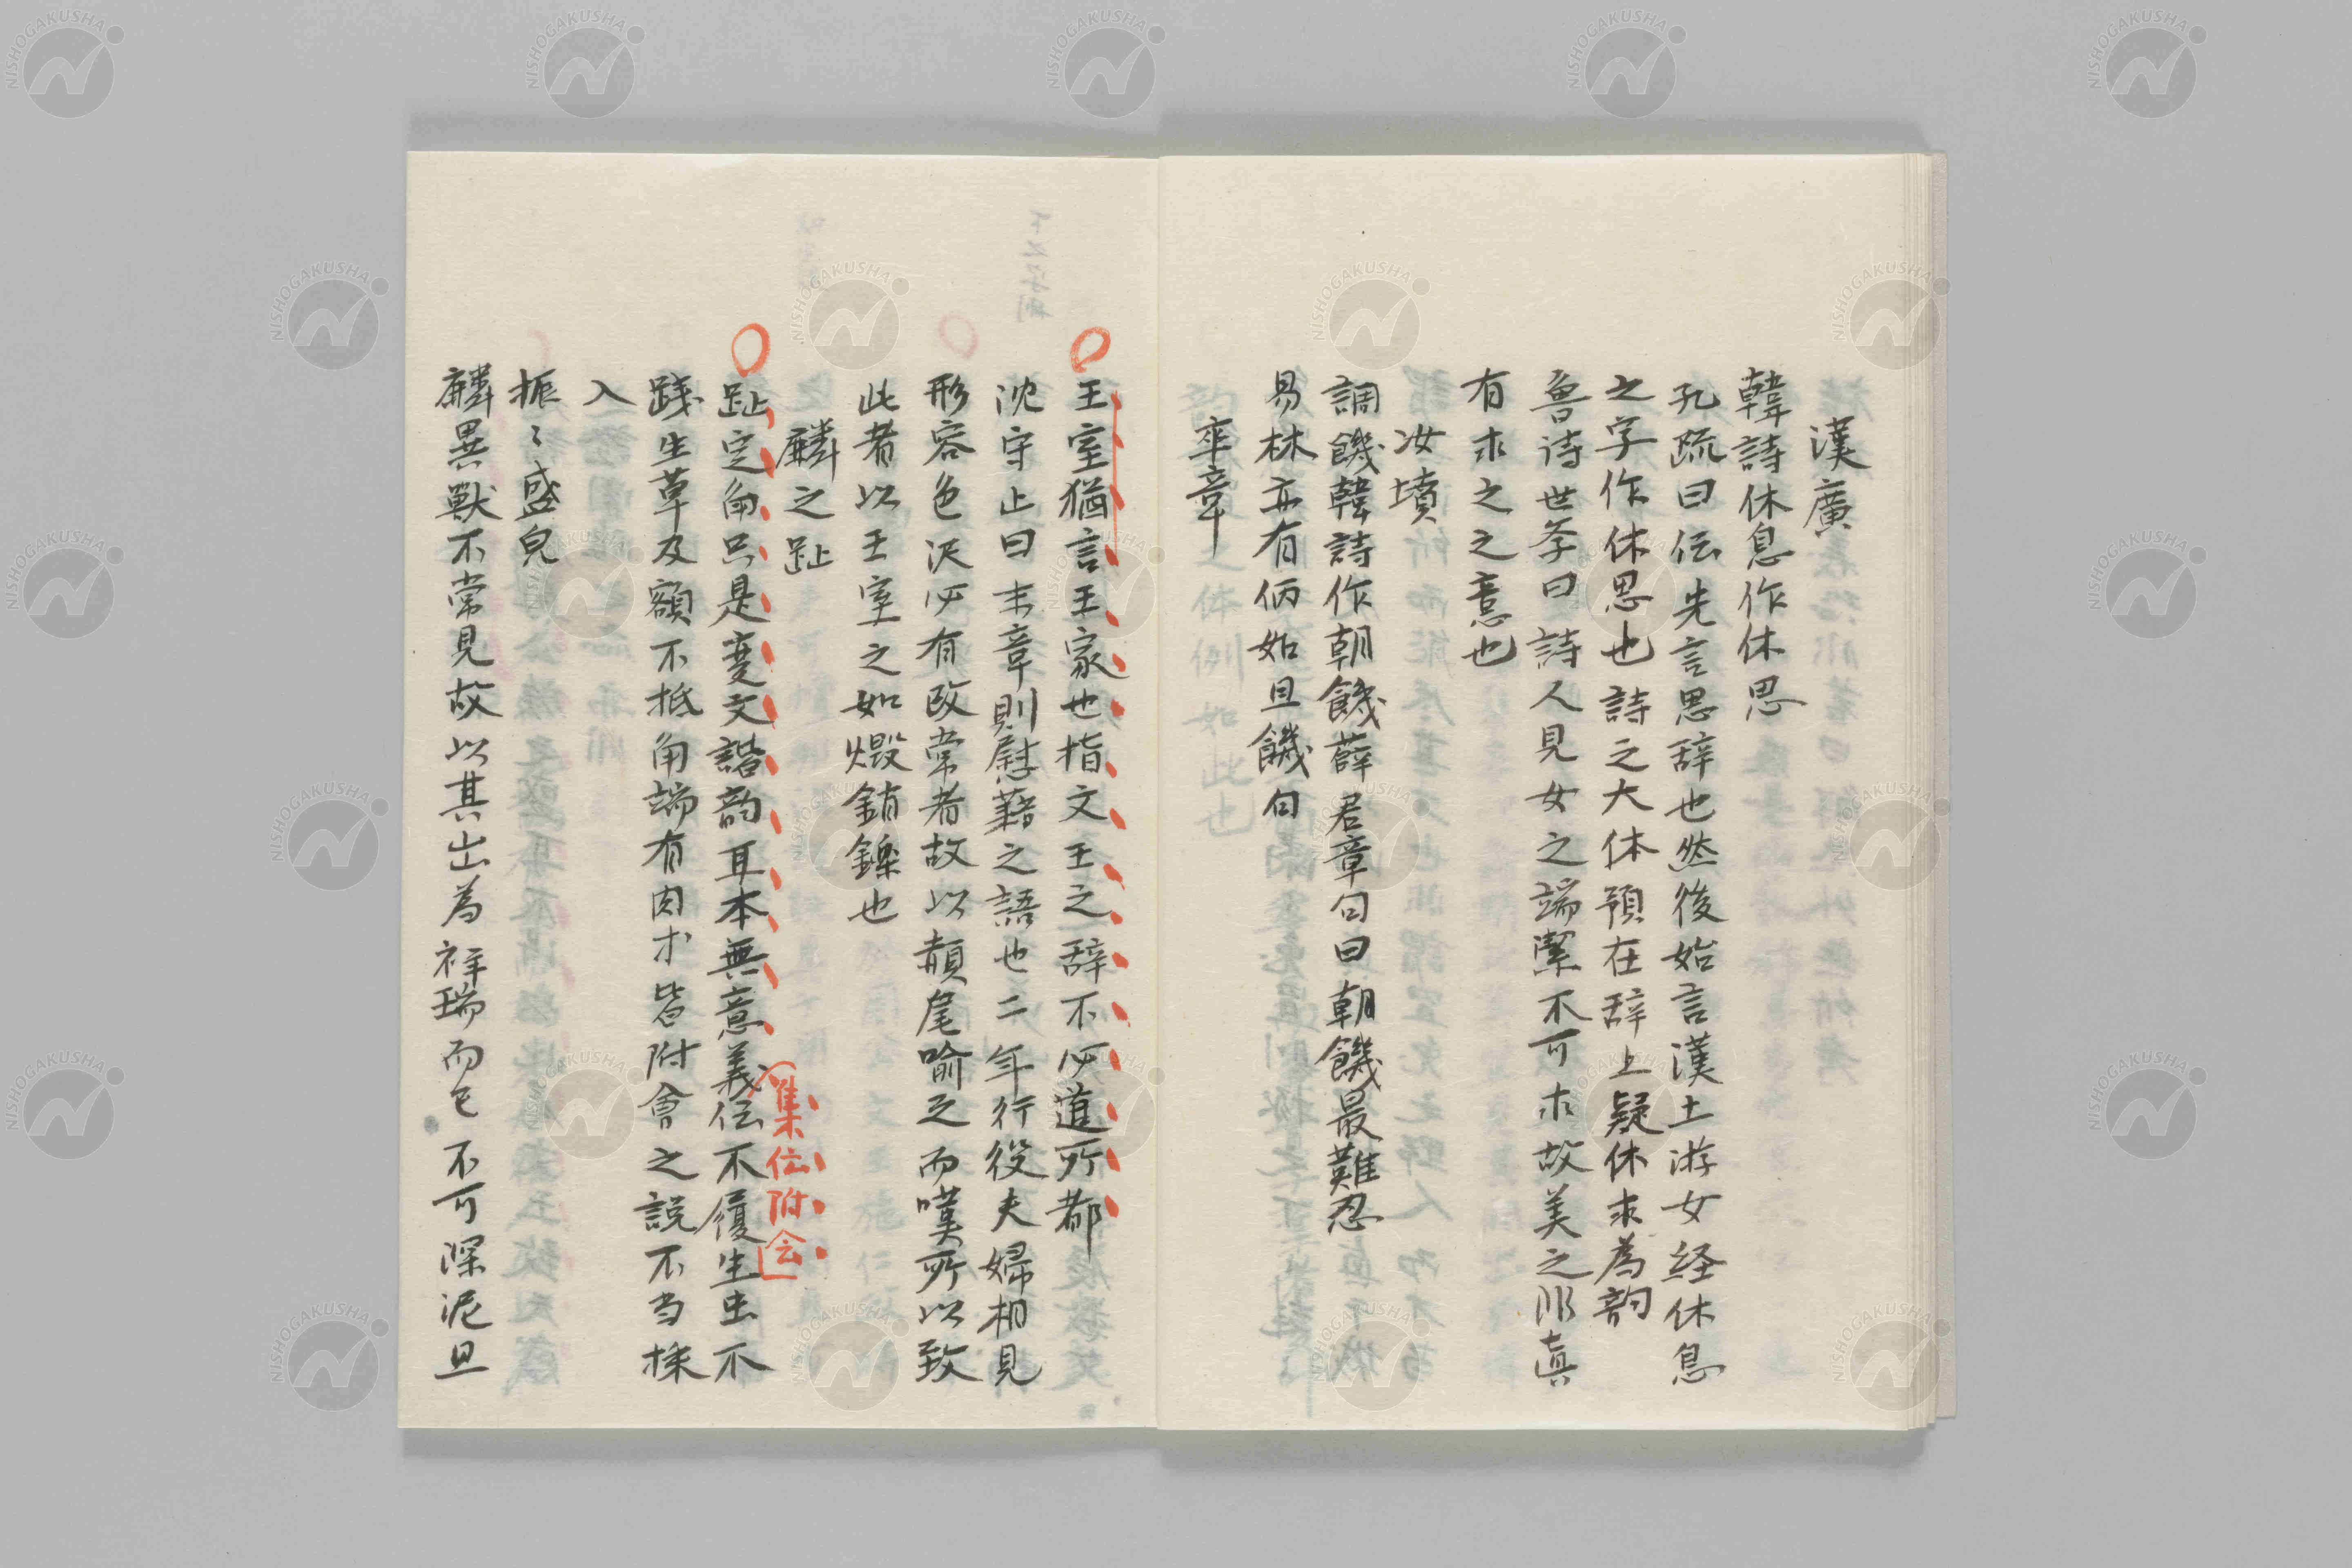 漢廣
韓詩休息作休思
孔疏曰伝先言思辞也然後始言漢上游女経休息
之字作休思也詩之大体預在辞上疑休求為韵
魯诗世本曰詩人見女之端潔不可求故美之非真
有求之之意也
汝墳
調饑韓詩作朝饑薛君章句曰朝饑最難忍
易林亦有伤如旦饑句
卒章
王室猶言王家也指文王之辞不必道所都
沈守止曰末章則慰藉之語也二年行役夫婦相見
形容色沢必有改常者故以赬尾喻之而嘆所以致
此者以王室之如燬銷鑠也
麟之趾
趾定角只是変文諧韵耳本無意義伝不履生虫不
集伝附会
踐生草及額不抵角端有肉才皆附會之説不当採
入
振〻盛皃
麟異獣不常見故以其出為祥瑞而已不可深泥且
NISHOGAKUSHA